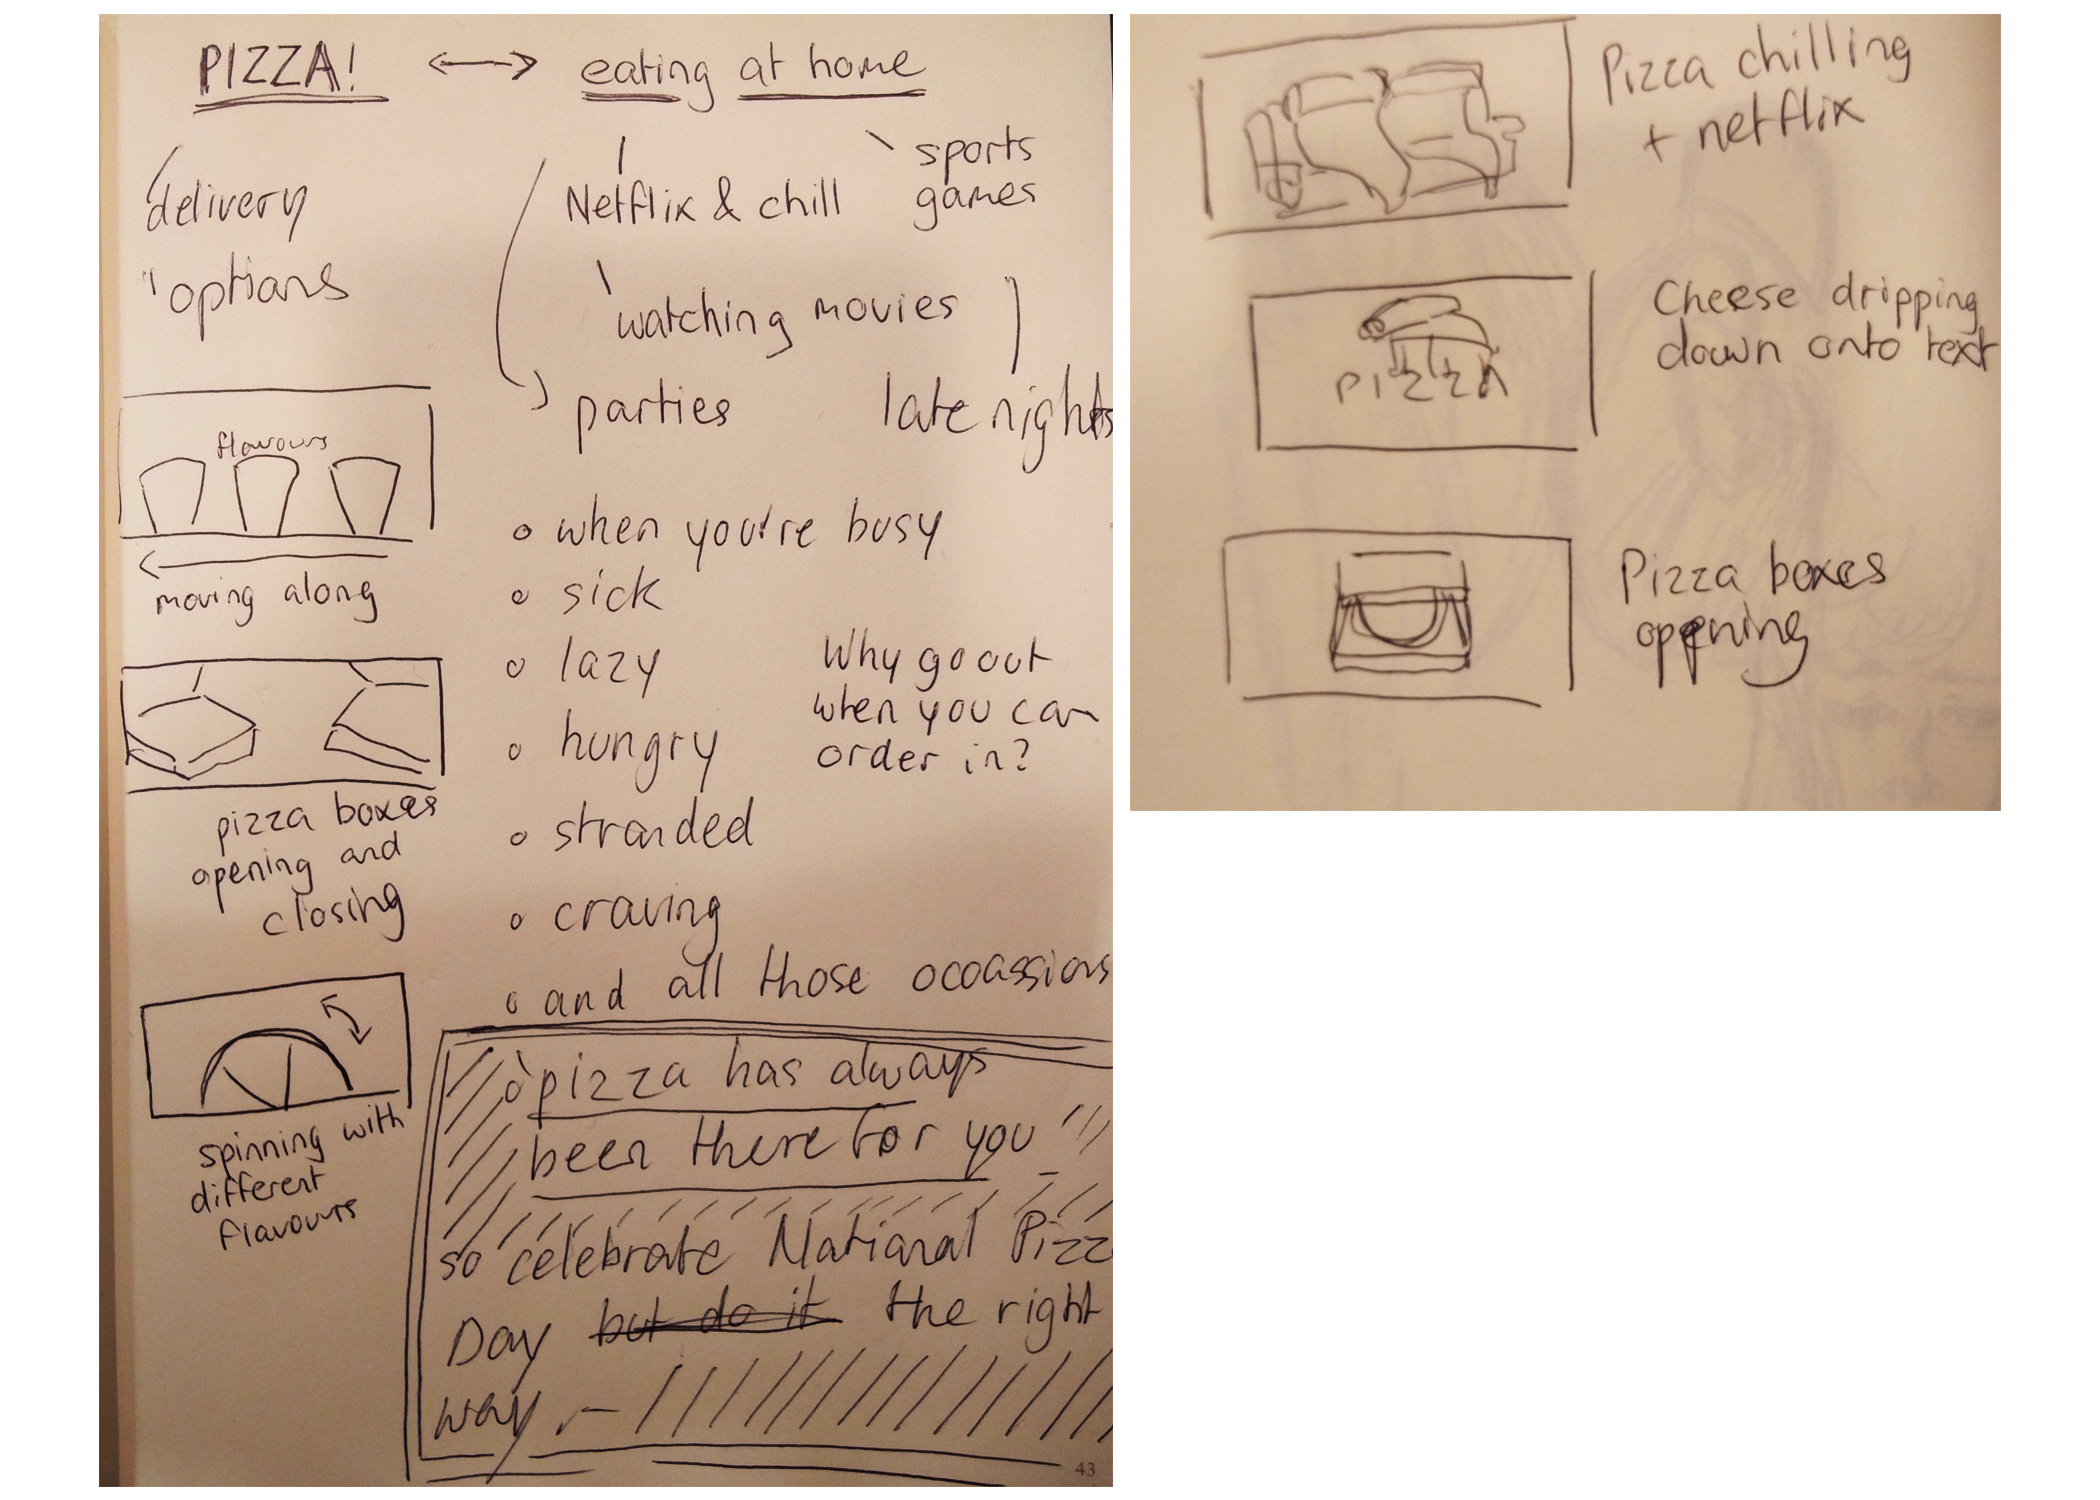 PIZZA! ↔ eating at home
delivery
options
Netflix & chill
sports
games
watching movies
parties
late nights
flavours
moving along
pizza boxes
opening and
closing
spinning with
different
flavours
o when you're busy
o sick
o lazy
o hungry
o stranded
o craving
o and all those ocoassions
Why go out
when you can
order in?
o pizza has always
been there for you
so celebrate National Pizz
Day but do it the right
way.
43
Pizza chilling
+ netflix
Cheese dripping
down onto text
PIZZA
Pizza boxes
opening